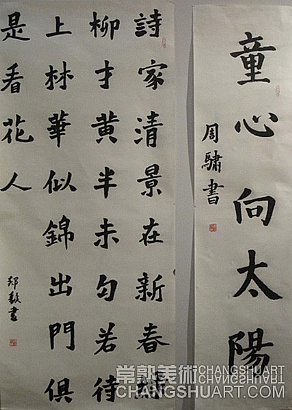 童心向太陽
周驌書
詩家清景在新春綠
柳才黃半未匀若待
上林華似錦出門俱
是看花人
常熟美術 CHANGSHUART.COM